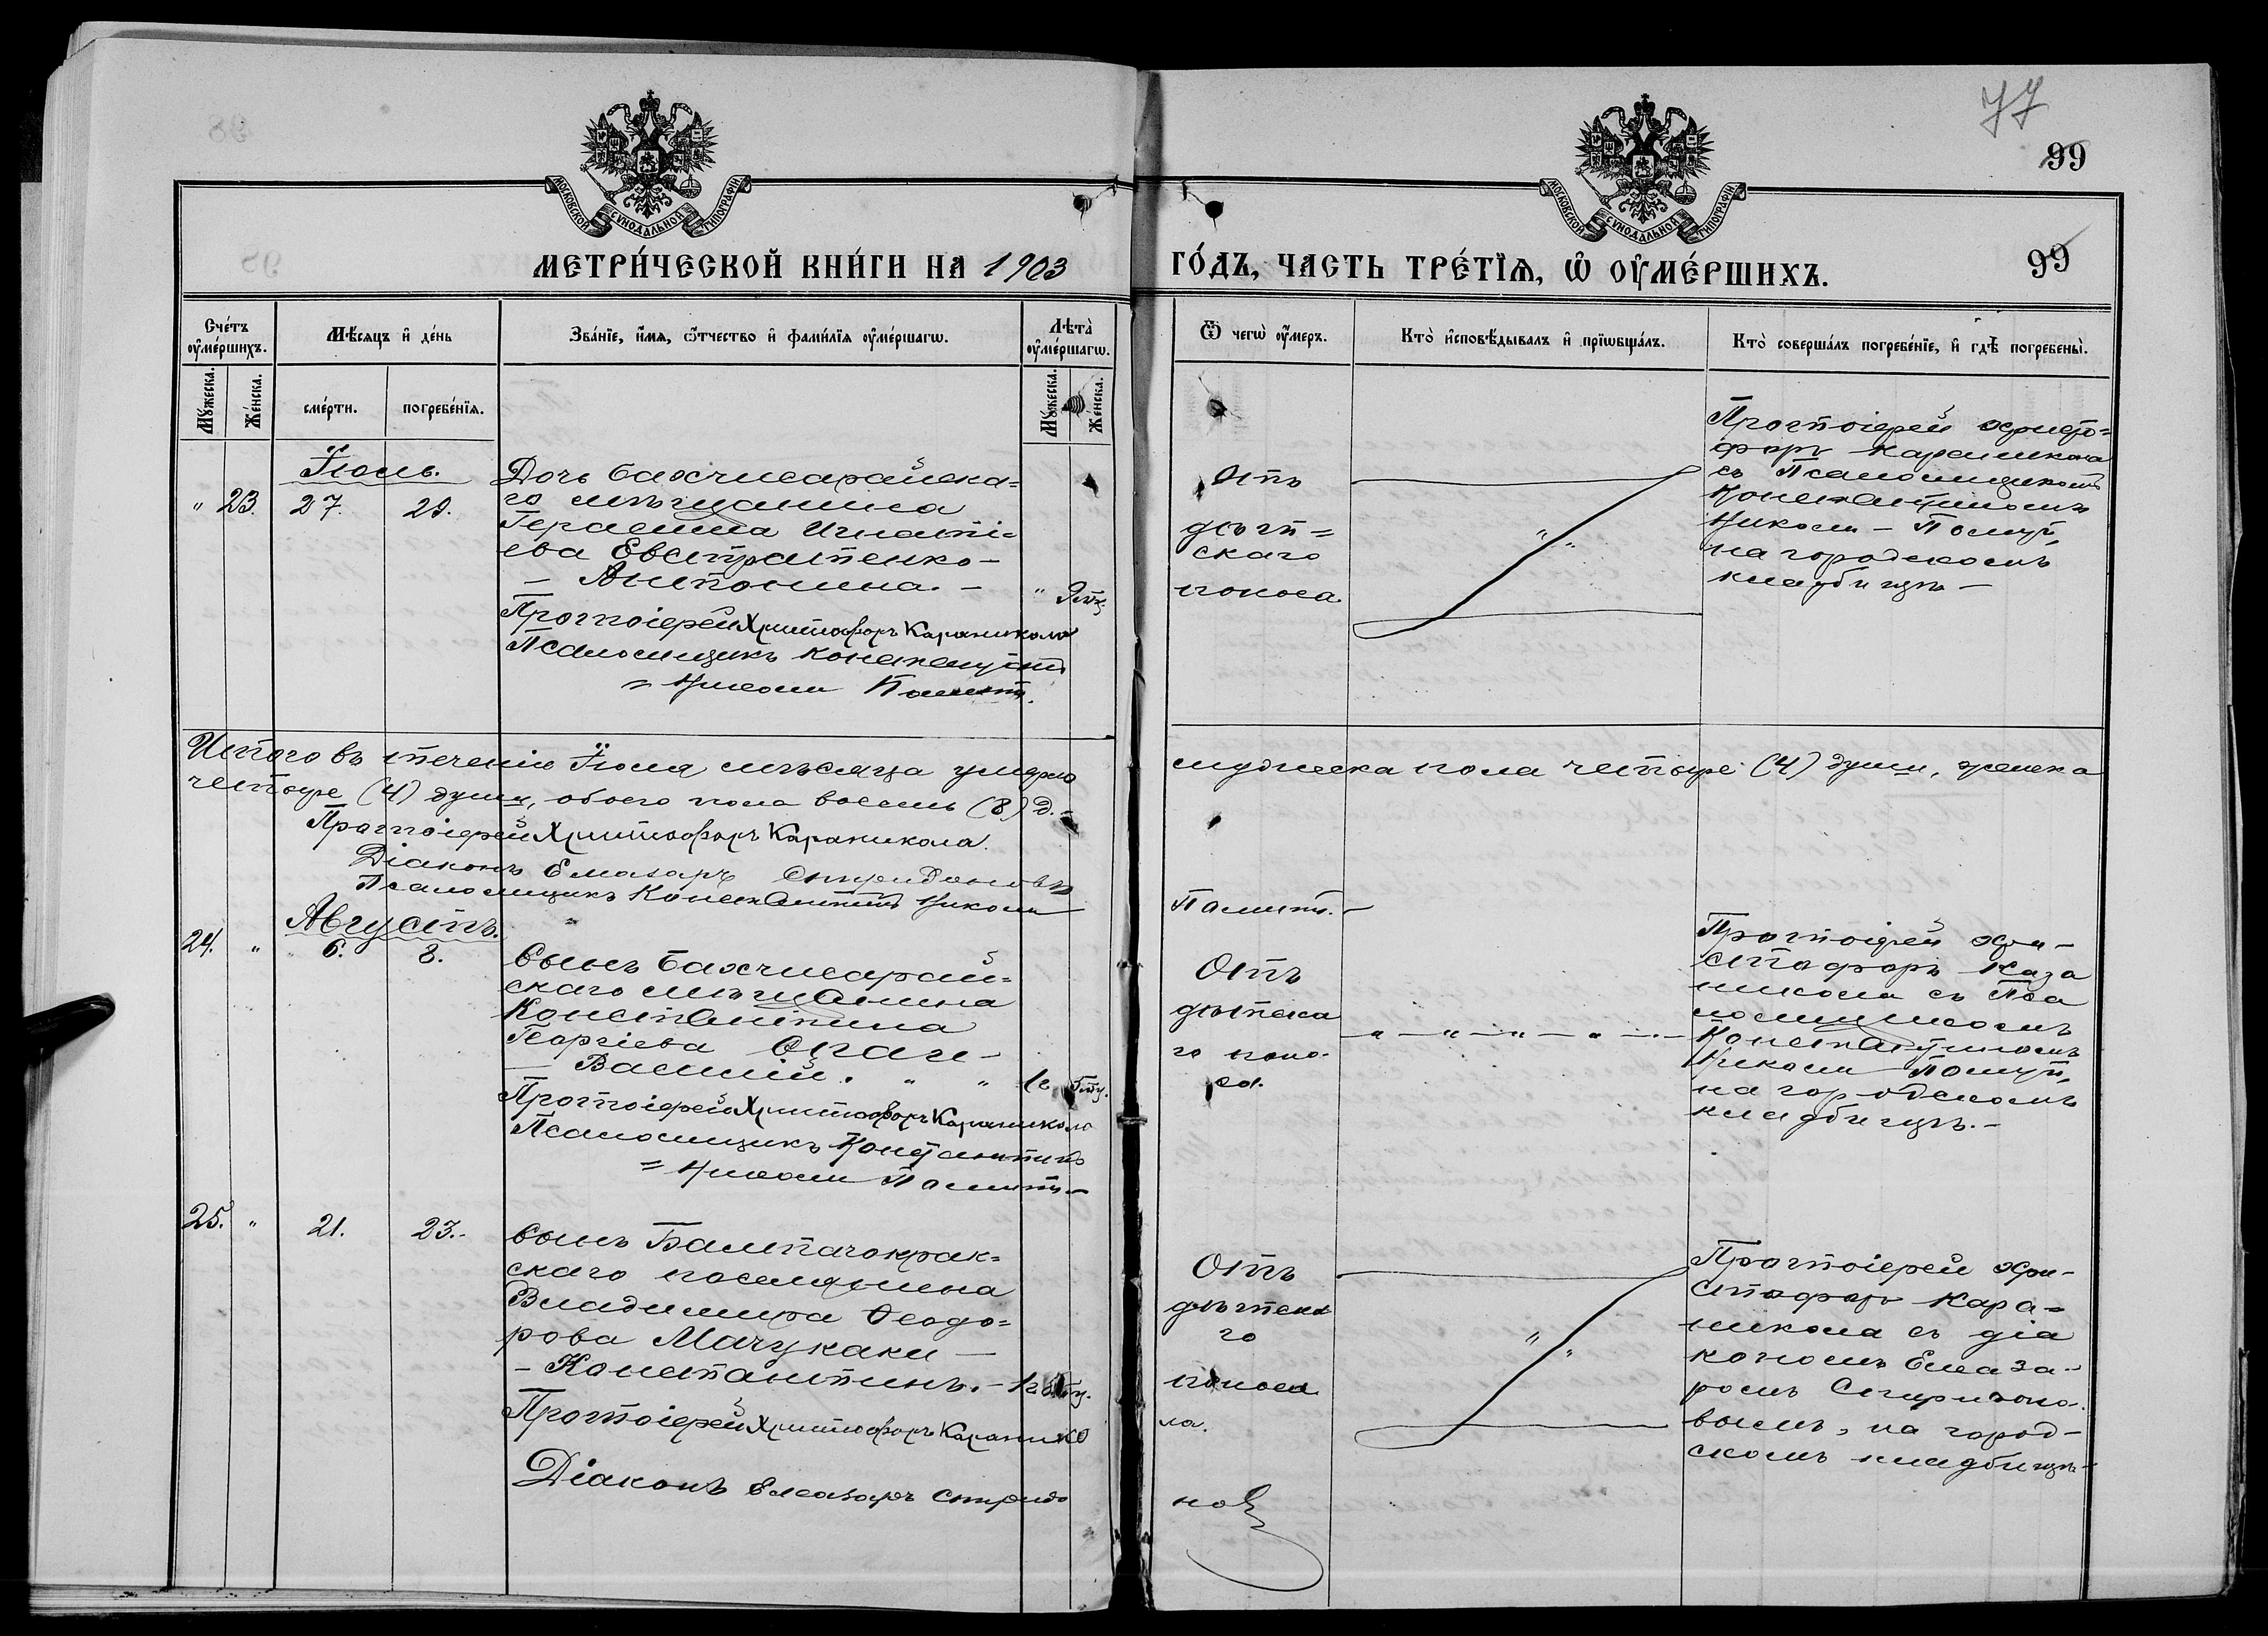 77
99
МОСКОВСКОЙ СѴНОДАЛЬНОЙ ТИПОГРАФІИ
МОСКОВСКОЙ СѴНОДАЛЬНОЙ ТИПОГРАФІИ
МЕТРИ́ЧЕСКОЙ КНИ́ГИ НА 1903
ГО́ДЪ, ЧАСТЬ ТРЕ́ТЇѦ, Ѡ ОУ҆МЕ́РШИХЪ.
99
Сче́тъ оу҆ме́ршихъ.
Мѣ́сяцъ и҆ де́нь
Зва́нїе, и҆́мя, ѻ҆́тчество и҆ фами́лїя оу҆ме́ршагѡ.
Лѣ́та оу҆ме́ршагѡ.
Ѿ чегѡ̀ оу҆́меръ.
Кто̀ и҆сповѣ́дывалъ и҆ прїѡбща́лъ.
Кто̀ соверша́лъ погребе́нїе, и҆ гдѣ̀ погребены̀.
Му́жеска.
Же́нска.
сме́рти.
погребе́нїя.
Му́жеска.
Же́нска.
Іюль.
" 23. 27. 29.
Дочь Бахчисарайска=
го мѣщанина
Герасима Игнаті=
ева Евстратенко -
- Антонина. -
"
Протоіерей Христофоръ Караникола
Псаломщикъ Константинъ
= Николи Памит.
Отъ
дѣт=
скаго
поноса
" "
Протоіерей Христо=
форъ Караникола
съ Псаломщикомъ
Константиномъ
Николи - Помит,
на городскомъ
кладбищѣ -
Итого въ теченіе Іюля мѣсяца умерло
мужеска пола четыре (4) души, женска
четыре (4) души, обоего пола восемь (8) д. -
Протоіерей Христофоръ Караникола.
Діаконъ Елазаръ Спиридоновъ
Псаломщикъ Константинъ Николи
Памит. -
Августъ.
24. " 6. 8.
Сынъ Бахчисарай=
скаго мѣщанина
Константина
Георгіева
- Василій. " "
Протоіерей Христофоръ Караникола
Псаломщикъ Константинъ
= Николи Памит. -
Отъ
дѣтска
го поно-
са.
Протоіерей Хри-
стофоръ Кара
никола съ Пса
ломщикомъ
Константиномъ
Николи Помит,
на городскомъ
кладбищѣ. -
25. " 21. 23. -
Сынъ Балтачокрак=
скаго поселянина
Владимира Ѳеодо=
рова Мачукаки -
- Константинъ. -
Протоіерей Христофоръ Карани ко
ла.
Діаконъ Елеазаръ Спиридо
новъ
Отъ
дѣтска
го
поноса
" "
Протоіерей Хри-
стофоръ Кара=
никола съ діа
кономъ Елеаза-
ромъ Спиридоно-
вымъ, на город-
скомъ кладбищѣ -